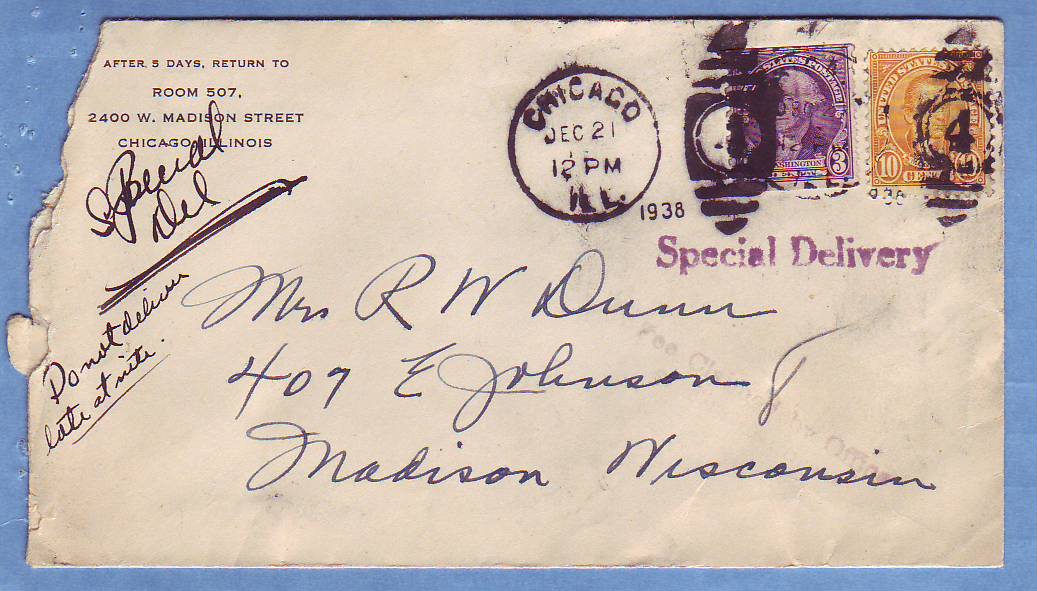 AFTER 5 DAYS, RETURN TO
ROOM 507,
2400 W. MADISON STREET
CHICAGO, ILLINOIS
Special
Del
Do not deliver
late at nite.
CHICAGO
DEC 21
12 PM
ILL.
1938
STATES POSTAGE
WASHINGTON
3
UNITED STATES
10
CENTS
4
938
Special Delivery
Mrs R W Dunn
409 E Johnson
Madison Wisconsin
Fee Claimed by Office